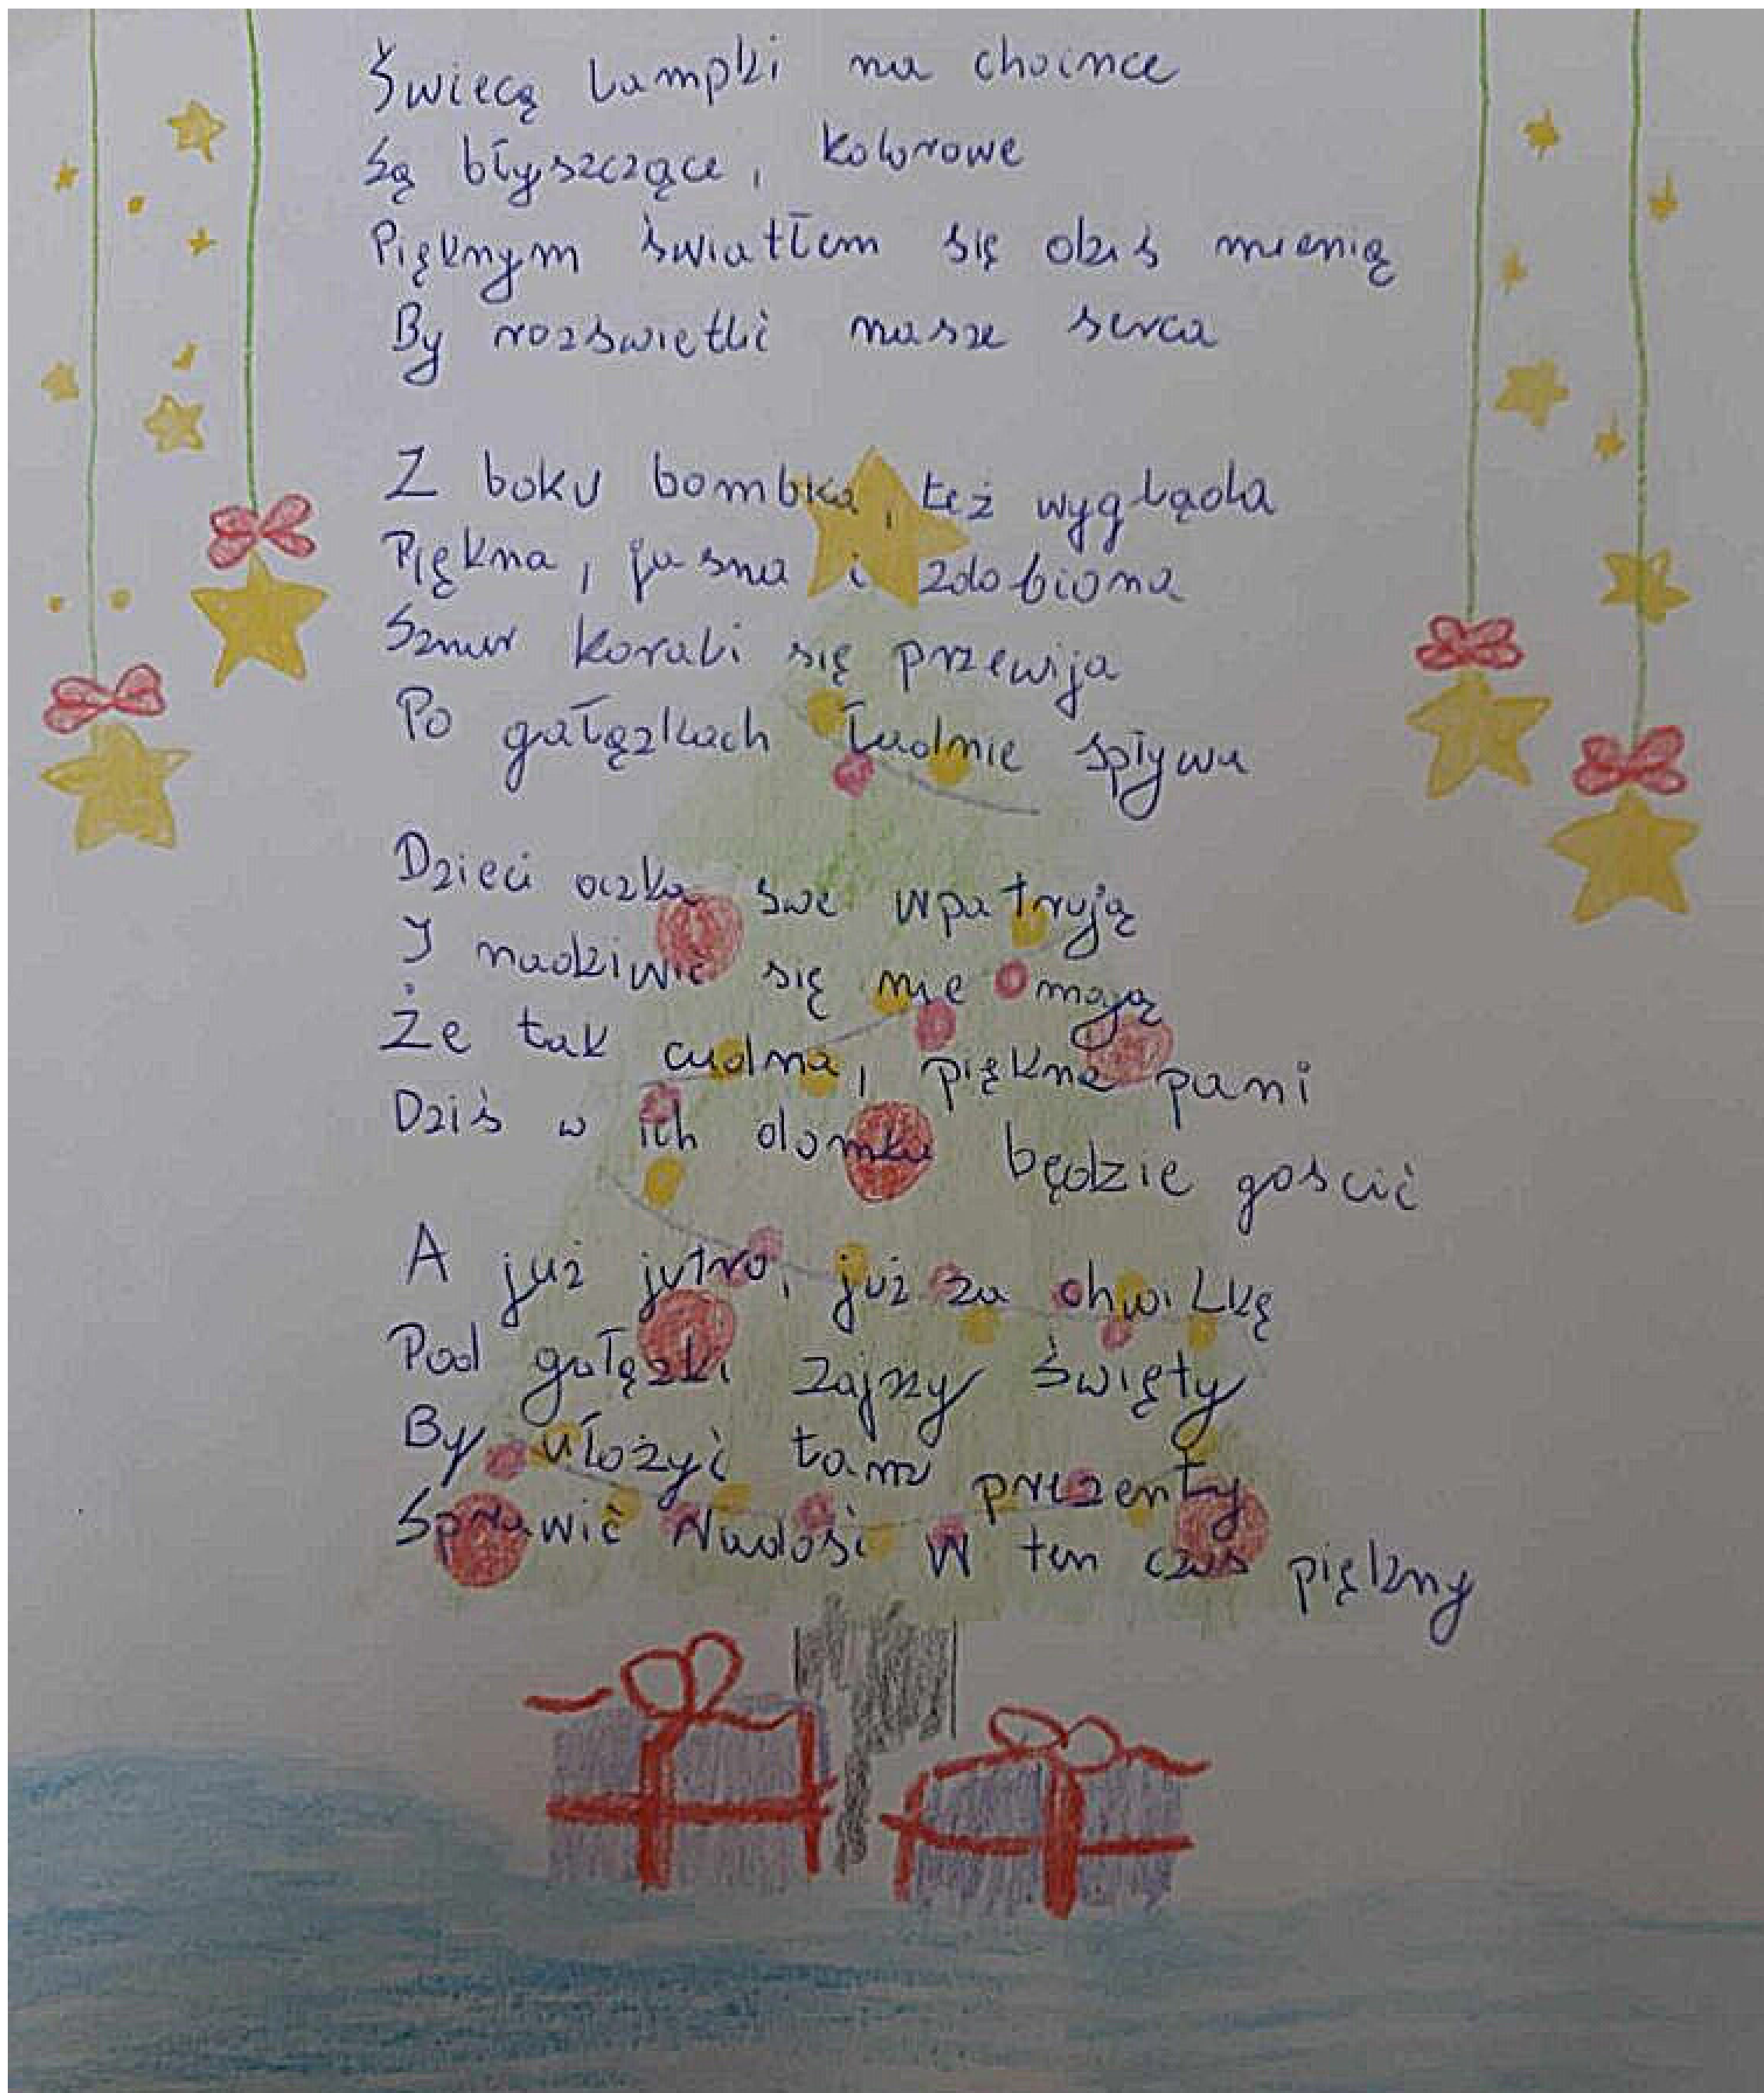 Świecą lampki na choince
Są błyszczące, kolorowe
Pięknym światłem się dziś mienią
By rozświetlić nasze serca
Z boku bombka, też wygląda
Piękna, jasna i zdobiona
Sznur korali się przewija
Po gałązkach ładnie spływa
Dzieci oczka swe wpatrują
I nadziwić się nie mogą
Że tak cudna, piękna pani
Dziś w ich domku będzie gościć
A już jutro, już za chwilkę
Pod gałęzki zajrzy Święty
By ułożyć tam prezenty
Sprawić radość w ten czas piękny